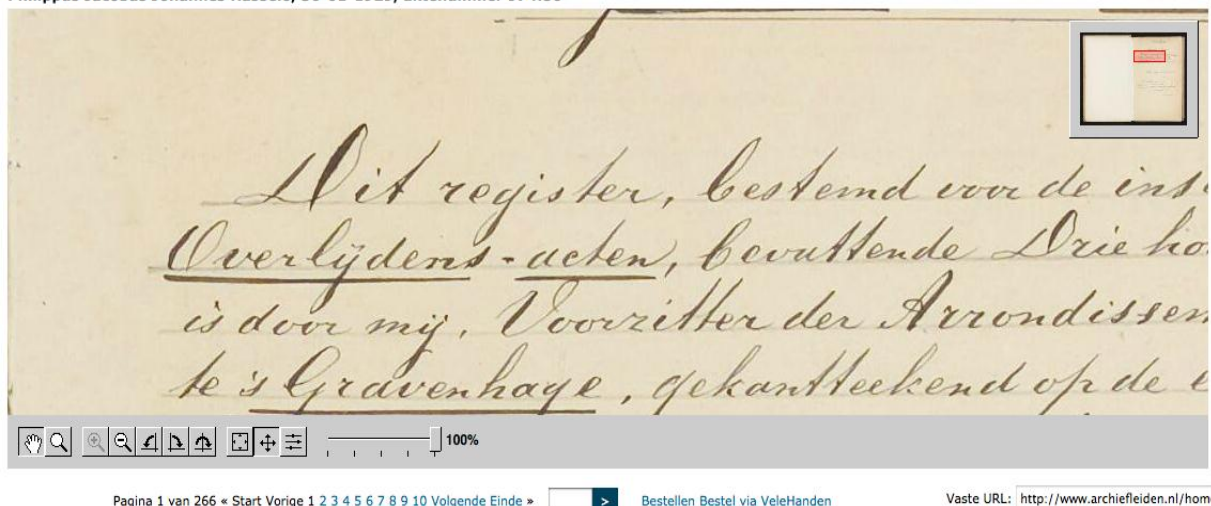 Dit register, bestemd voor de ins
Overlijdens-acten, bevattende Drie ho
is door mij, Voorzitter der Arrondissem
te 's Gravenhage, gekantteekend op de e
100%
Pagina 1 van 266 « Start Vorige 1 2 3 4 5 6 7 8 9 10 Volgende Einde » > Bestellen Bestel via VeleHanden Vaste URL: http://www.archiefleiden.nl/hom